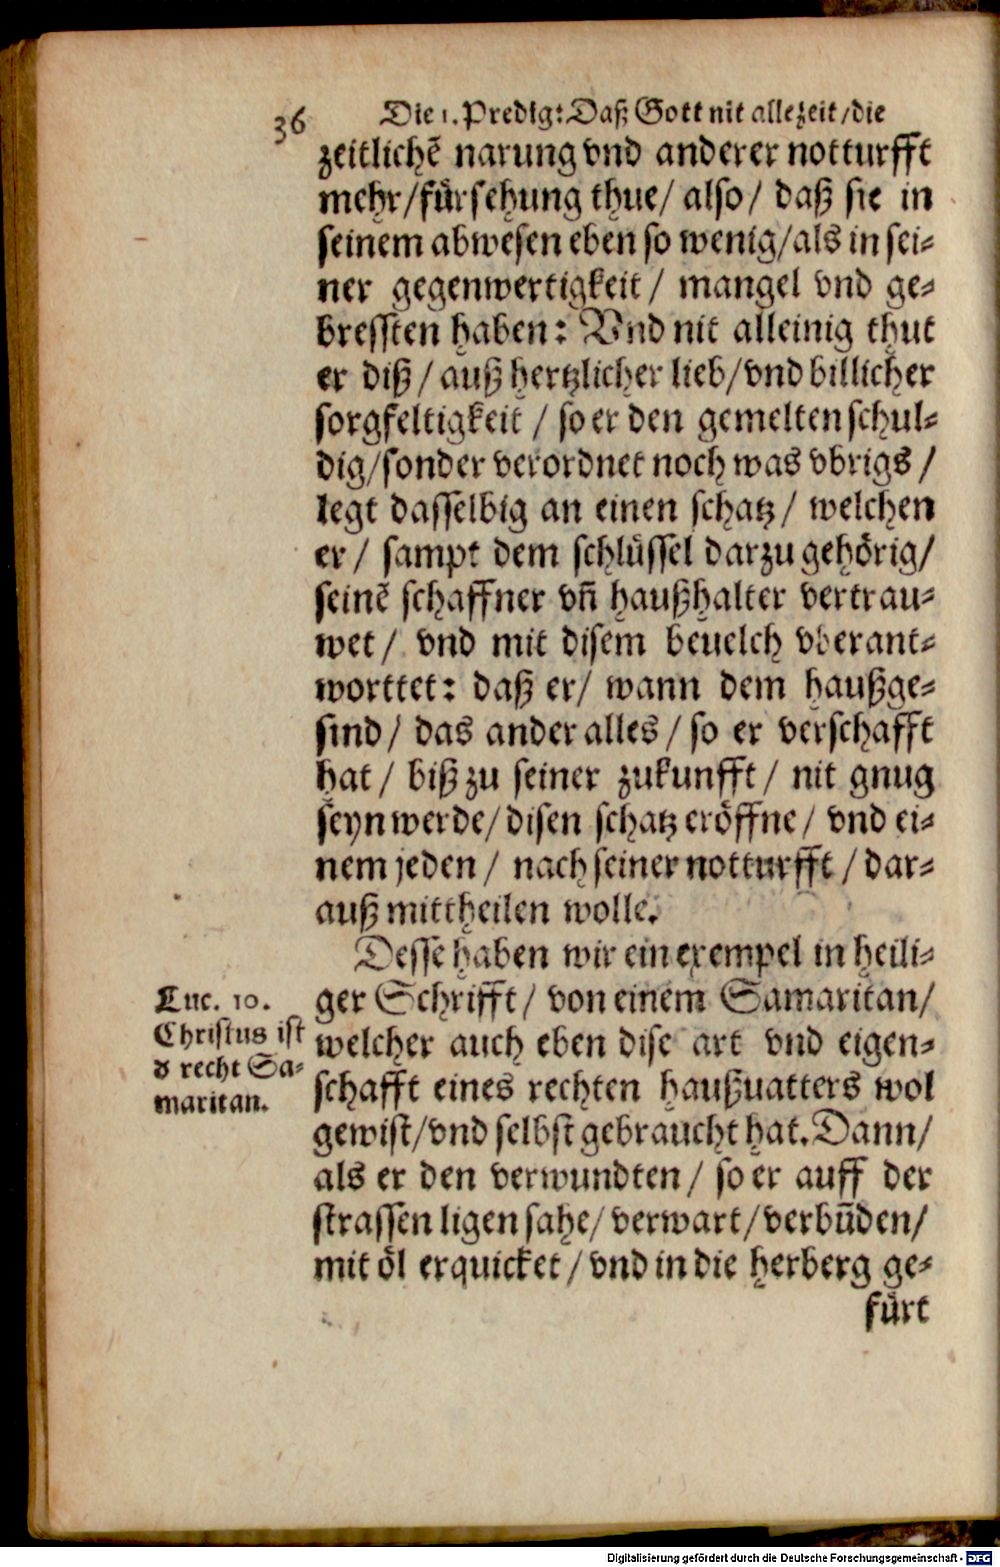 36 Die 1. Predig: Daß Gott nit allezeit/die
zeitlichẽ narung vnd anderer notturfft
mehr/fürsehung thue/ also/ daß sie in
seinem abwesen eben so wenig/als in sei-
ner gegenwertigkeit/ mangel vnd ge-
bressten haben: Vnd nit alleinig thut
er diß/auß hertzlicher lieb/vnd billicher
sorgfeltigkeit / so er den gemelten schul-
dig/sonder verordnet noch was vbrigs/
legt dasselbig an einen schatz/ welchen
er/ sampt dem schlüssel darzu gehörig/
seinẽ schaffner vñ haußhalter vertrau-
wet/ vnd mit disem beuelch vberant-
worttet: daß er/ wann dem haußge-
sind/ das ander alles/ so er verschafft
hat/ biß zu seiner zukunfft/ nit gnug
seyn werde/disen schatz eröffne/ vnd ei-
nem jeden/ nach seiner notturfft/dar-
auß mittheilen wolle.
Desse haben wir ein exempel in heili-
Luc. 10.
Christus ist
d̕ recht Sa-
maritan.
ger Schrifft/ von einem Samaritan/
welcher auch eben dise art vnd eigen-
schafft eines rechten haußuatters wol
gewist/vnd selbst gebraucht hat. Dann/
als er den verwundten/ so er auff der
strassen ligen sahe/verwart/verbũden/
mit öl erquicket/vnd in die herberg ge-
fürt
Digitalisierung gefördert durch die Deutsche Forschungsgemeinschaft - DFG